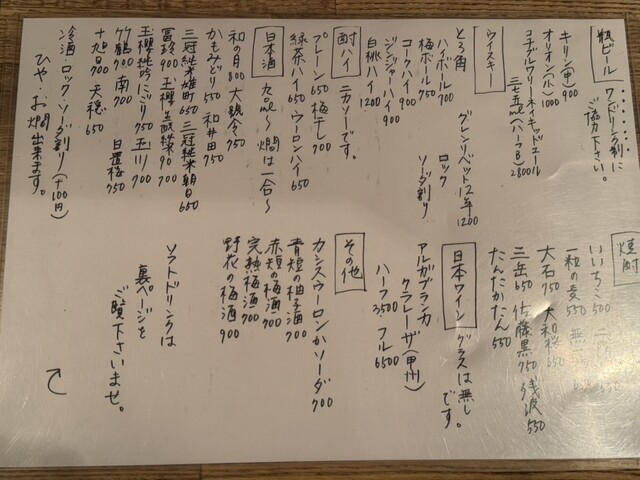 瓶ビール
ワンドリンク制に
ご協力下さい。
キリン(中)900
オリオン(小)1000
コエドルワリーネイキッドエール
三七五ml(ハーフB)2800
ウイスキー
とろ角
ハイボール700
梅ボール750
コークハイ900
ジンジャーハイ900
白桃ハイ1200
グレンリベット12年1200
ロック
ソーダ割り
酎ハイ
ニカソーです。
プレーン650 梅干し700
緑茶ハイ650 ウーロンハイ650
日本酒
九品〜燗は一合〜
和の月800 大號令750
かもみどり550 和井田750
三冠純米雄町650 三冠純米朝日650
冨玲900 玉櫻生酛純米90 700
玉櫻純吟にごり750 玉川700
竹鶴700 南700 日置桜750
十旭日700 天穏650
冷酒・ロック・ソーダ割り(+100円)
ひや・お燗出来ます。
焼酎
いいちこ500
一粒の麦550
大石750 大和桜650
三岳650 佐藤黒750 残波550
たんたかたん550
日本ワイン
グラスは無しです。
アルガブランカ
クラレーザ(甲州)
ハーフ3500 フル6500
その他
カシスウーロンかソーダ700
青短の柚子酒700
赤短の梅酒700
完熟梅酒700
野花の梅酒900
ソフトドリンクは
裏ページを
ご覧下さいませ。